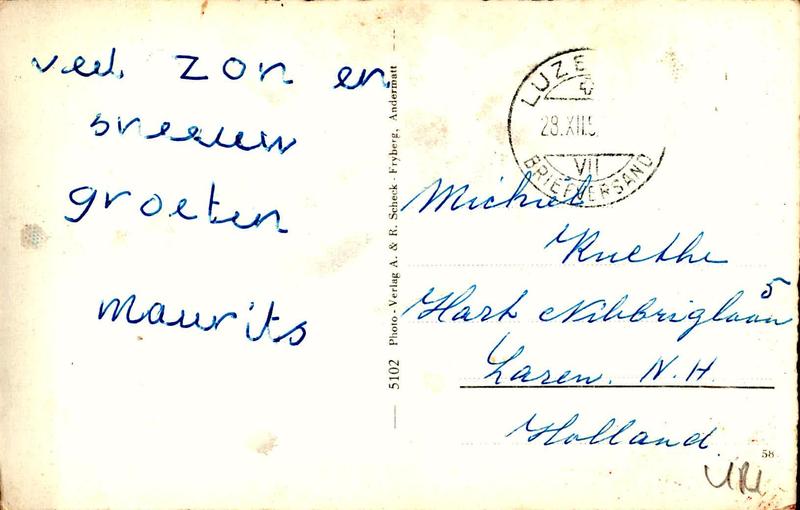 veel zon en
sneeuw
groeten
maurits
5102 Photo-Verlag A. & R. Scheck-Fryberg, Andermatt
LUZE
28.XII.5
VII
BRIEFVERSAND
Michiel
Knethe
Hart Nibbriglaan 5
Laren. N.H.
Holland.
58